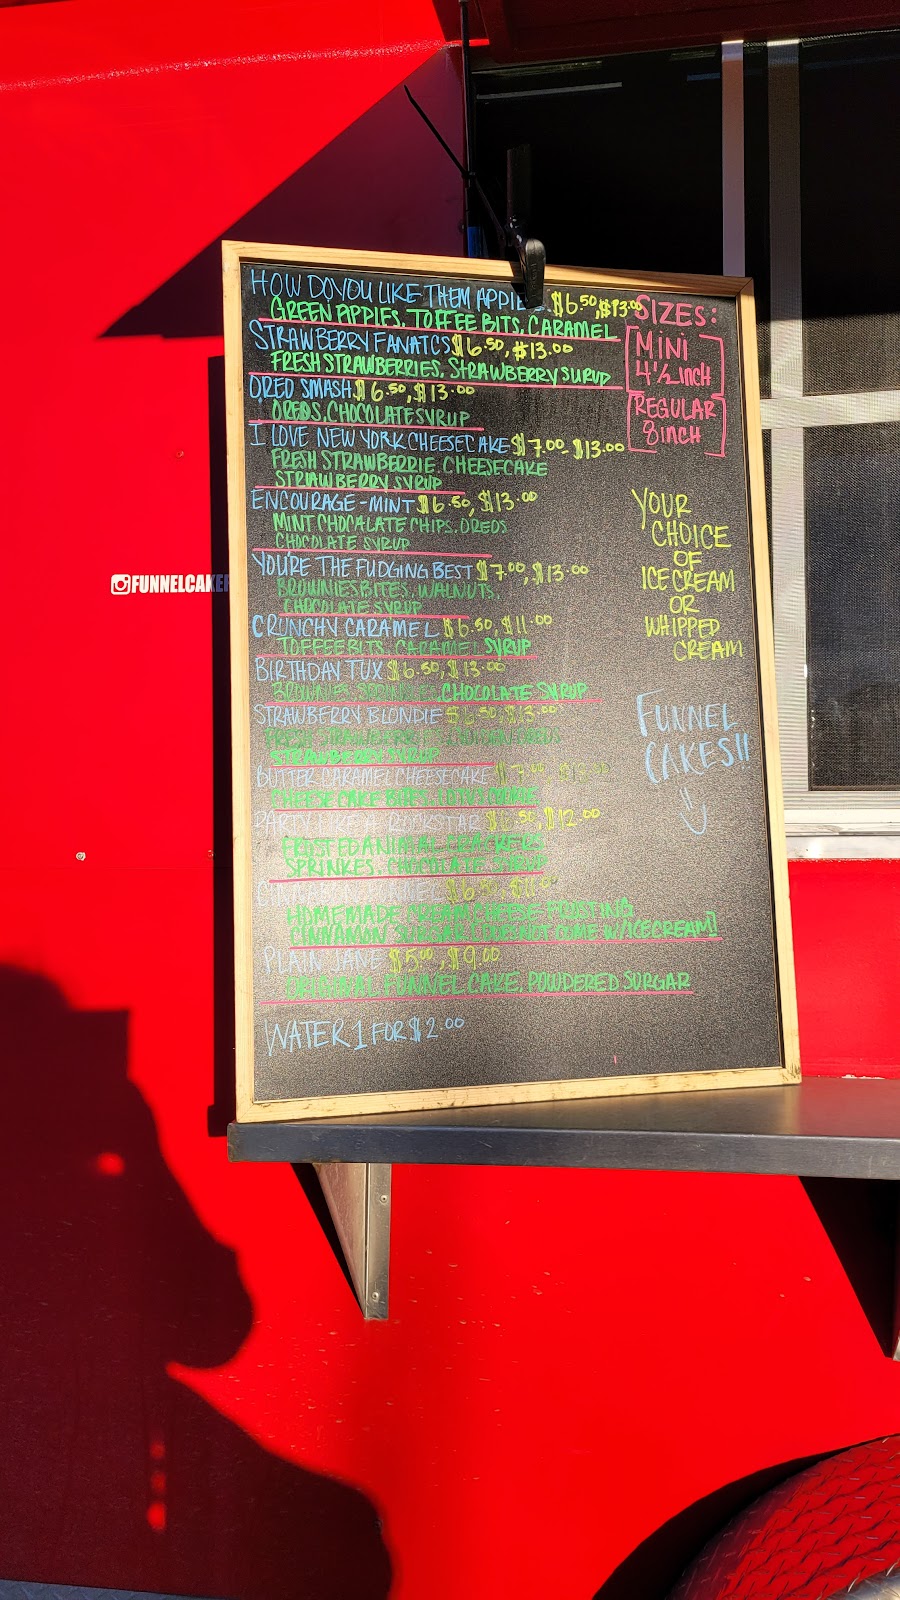 HOW DO YOU LIKE THEM APPLE $6.50, $13.00
GREEN APPLES, TOFFEE BITS, CARAMEL
STRAWBERRY FANATCS $6.50, $13.00
FRESH STRAWBERRIES, STRAWBERRY SURUP
OREO SMASH $6.50, $13.00
OREOS, CHOCOLATE SYRUP
I LOVE NEW YORK CHEESECAKE $7.00-$13.00
FRESH STRAWBERRIE, CHEESECAKE
STRIAWBERRY SYRUP
ENCOURAGE-MINT $6.50, $13.00
MINT CHOCALATE CHIPS, OREOS
CHOCOLATE SYRUP
YOU'RE THE FUDGING BEST $7.00, $13.00
BROWNIES BITES, WALNUTS,
CHOCOLATE SYRUP
CRUNCHY CARAMEL $6.50, $11.00
TOFFEE BITS, CARAMEL SYRUP
BIRTHDAY TUX $6.50, $13.00
BROWNIES, SPRINKLES, CHOCOLATE SYRUP
STRAWBERRY BLONDIE $6.50, $13.00
FRESH STRAWBERRIES, GOLDEN OREOS
STRAWBERRY SYRUP
BUTTER CARAMEL CHEESECAKE $7.00,
CHEESE CAKE BITES, LOTUS COOKIE
PARTY LIKE A ROCKSTAR $6.50, $12.00
FROSTED ANIMAL CRACKERS
SPRINKES, CHOCOLATE SYRUP
$6.50, $11.00
HOMEMADE CREAM CHEESE FROSTING
CINNAMON SURGAR (DOES NOT COME W/ICE CREAM)
PLAIN JANE $5.00, $9.00
ORIGINAL FUNNEL CAKE, POWDERED SURGAR
WATER 1 FOR $2.00
SIZES:
MINI
4 1/2 INCH
REGULAR
8 INCH
YOUR
CHOICE
OF
ICE CREAM
OR
WHIPPED
CREAM
FUNNEL
CAKES!!
FUNNELCAKE